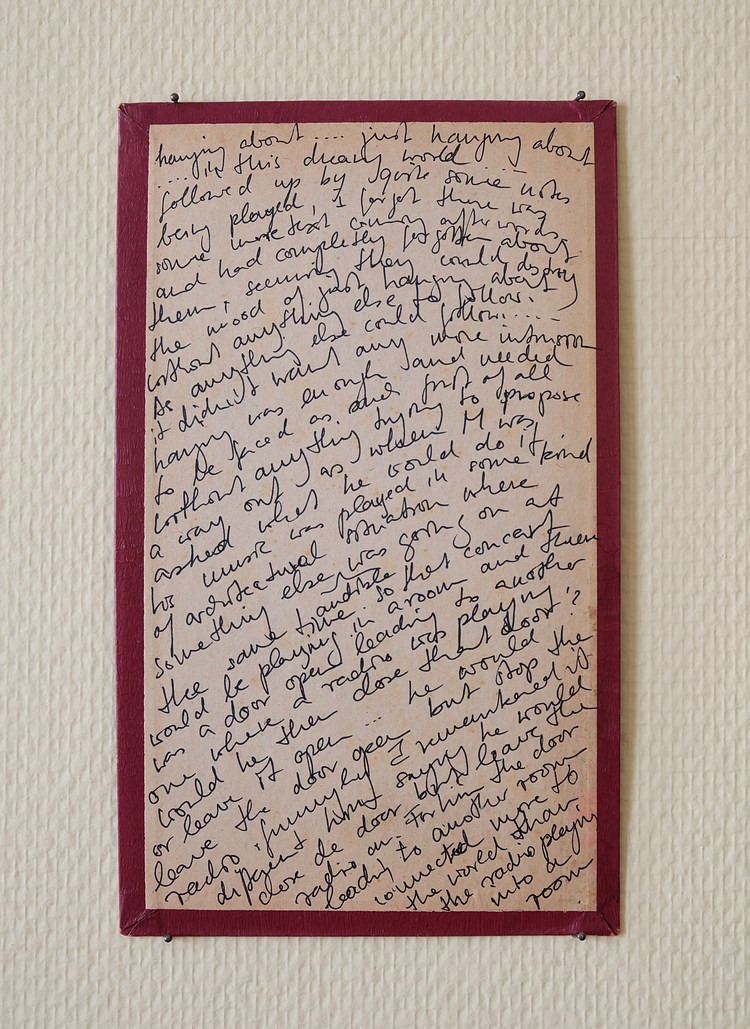 hanging about .... just hanging about
.... in this dreary world .....
followed up by quite some notes
being played, I forgot there was
some more text coming afterwords
and had completly forgotten about
them, seeming they could destroy
the mood of just hanging about
without anything else to follow.
As anything else could follow.....
it didn't want any more
hanging was enough and needed
to be faced as such first of all
without anything trying to propose
a way out, as when M was
asked what he would do if
his music was played in some kind
of architectural situation where
something else was going on at
the same time. So that concert
audible
would be playing in a room and there
was a door open leading to another
one where a radio was playing
would he then close that door?
or leave it open ... he would
leave the door open but stop the
radio. funnyly I remembered it
different him saying he would
close de door but leave the
radio on. For him the door
leading to another room
connected more to
the world than
the radio playing
into a
room.